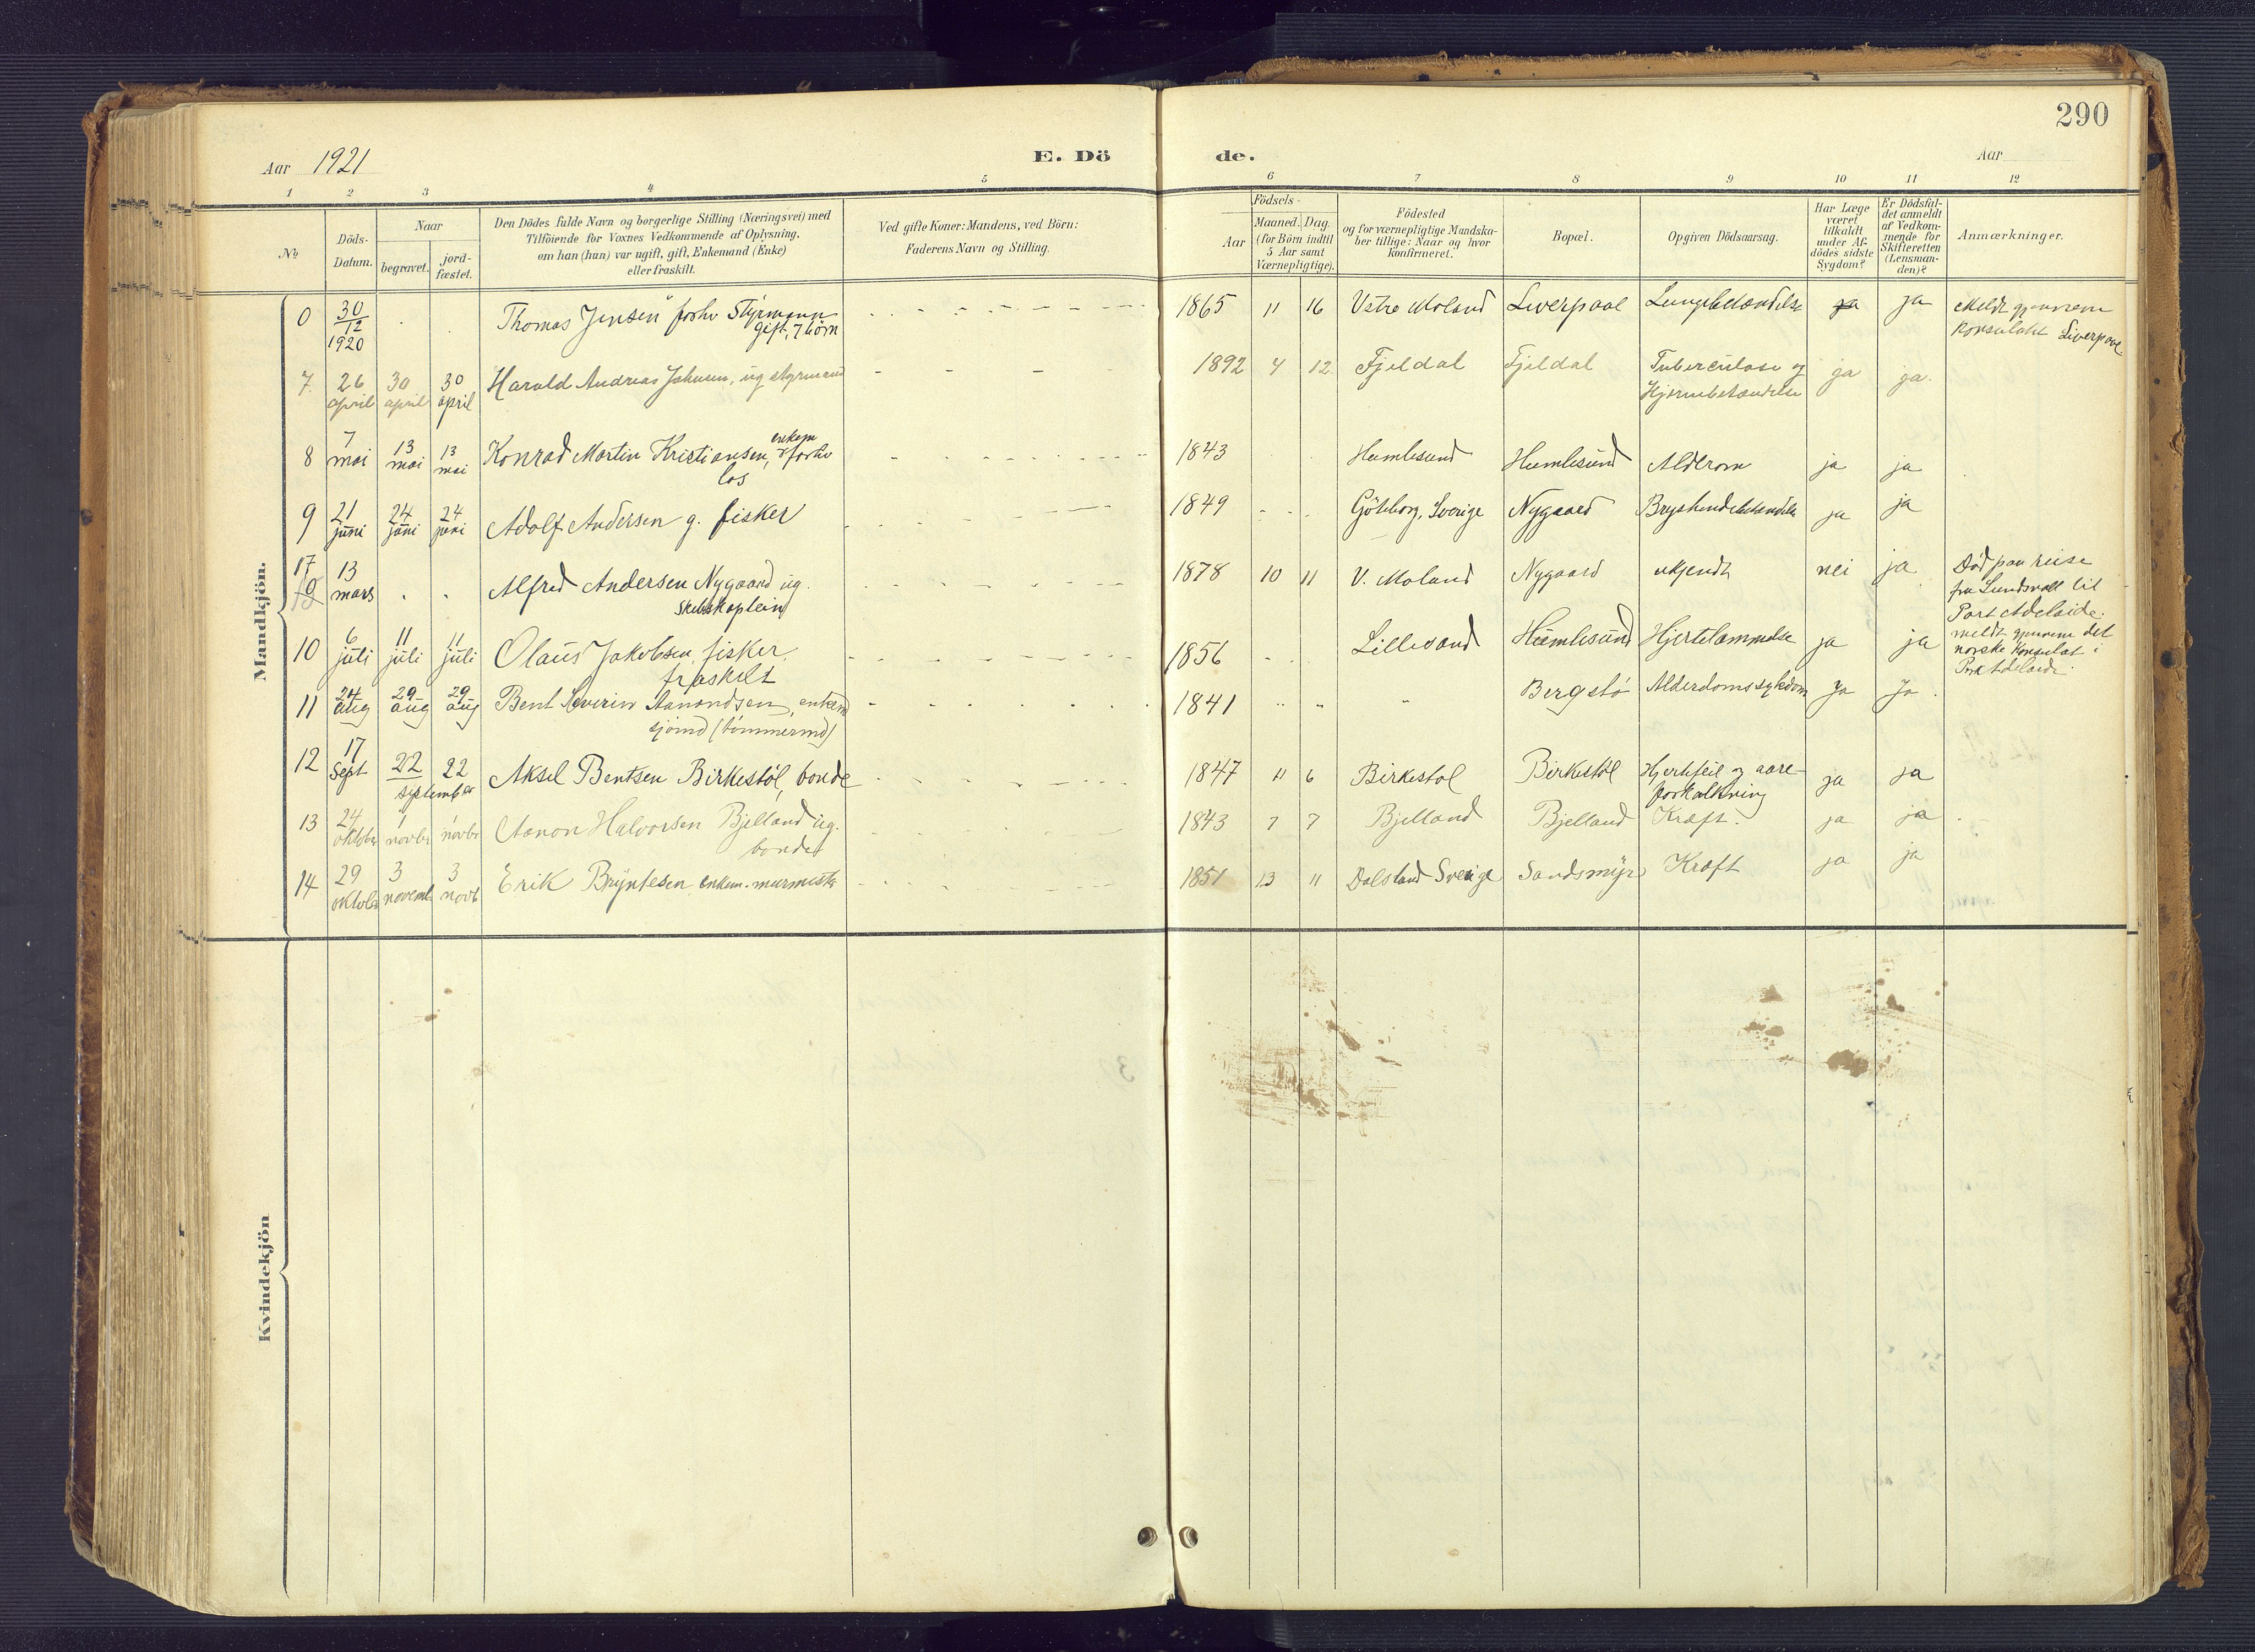 290
Aar 1921 E. Dö de. Aar
1 2 3 4 5 6 7 8 9 10 11 12
No
Döds-Datum.
Naar
begravet.
jord-fæstet.
Den Dödes fulde Navn og borgerlige Stilling (Næringsvei) med
Tilföiende for Voxnes Vedkommende af Oplysning,
om han (hun) var ugift, gift, Enkemand (Enke)
eller fraskilt.
Ved gifte Koner: Mandens, ved Börn:
Faderens Navn og Stilling.
Födsels-
Aar
Maaned. Dag.
(for Börn indtil
5 Aar samt
Værnepligtige).
Födested
og for værnepligtige Mandska-
ber tillige: Naar og hvor
konfirmeret.
Bopæl.
Opgiven Dödsaarsag.
Har Læge
været
tilkaldt
under Af-
dödes sidste
Sygdom?
Er Dödsfal-
det anmeldt
af Vedkom-
mende for
Skifteretten
(Lensman-
den)?
Anmærkninger.
Mandkjön.
0 30/12 1920 . . Thomas Jensen forhv Styrmann 1865 11 16 Vstre Moland Liverpool Lungebetændelse ja ja Meldt gjennem
gift, 7 börn konsulatet Liverpool
7. 26 april 30 april 30 april Harald Andreas Johnsen, ug styrmand 1892 4 12. Fjeldal Fjeldal Tuberculose og ja ja.
Hjernebetændelse
8 7 mai 13 mai 13 mai Konrad Martin Kristiansen, enkem forhv 1843 Humlesund Humlesund Alderom ja ja
los
9 21 juni 24 juni 24 juni Adolf Andersen g. fisker 1849 Göteborg, Sverige Nygaard Brysthindebetændelse ja ja
17 13 mars . . Alfred Andersen Nygaard ug. 1878 10 11 V. Moland Nygaard ukjendt nei ja Död paa reise
skibskaptein fra Sundsvall til
Port Adelaide.
meldt gjennem det
norske konsulat i
Port Adelaide.
10 6 juli 11 juli 11 juli Olaus Jakobsen, fisker, 1856 Lillesand Humlesund Hjertelammelse ja ja
fraskilt
11 24 aug 29 aug 29 aug Bent Severin Aanondsen, enkem 1841 " " " Bergstö Alderdomssykdom Ja Ja.
sjömd (tömmermd)
12 17 Sept 22 22 september Aksel Bentsen Birkestöl, bonde 1847 11 6 Birkestol Birkestöl Hjertefeil og aare- ja ja
forkalkning
13 24 oktober 1 novbr 1 novbr Aanon Halvorsen Bjelland ug. 1843 7 7 Bjelland Bjelland Kræft. ja ja
bonde
14 29 oktober 3 novemb 3 novb Erik Bryntesen, enkem. murmester 1851 13 11 Dalsland Sverige Sandsmyr Kræft ja ja
Kvindekjön